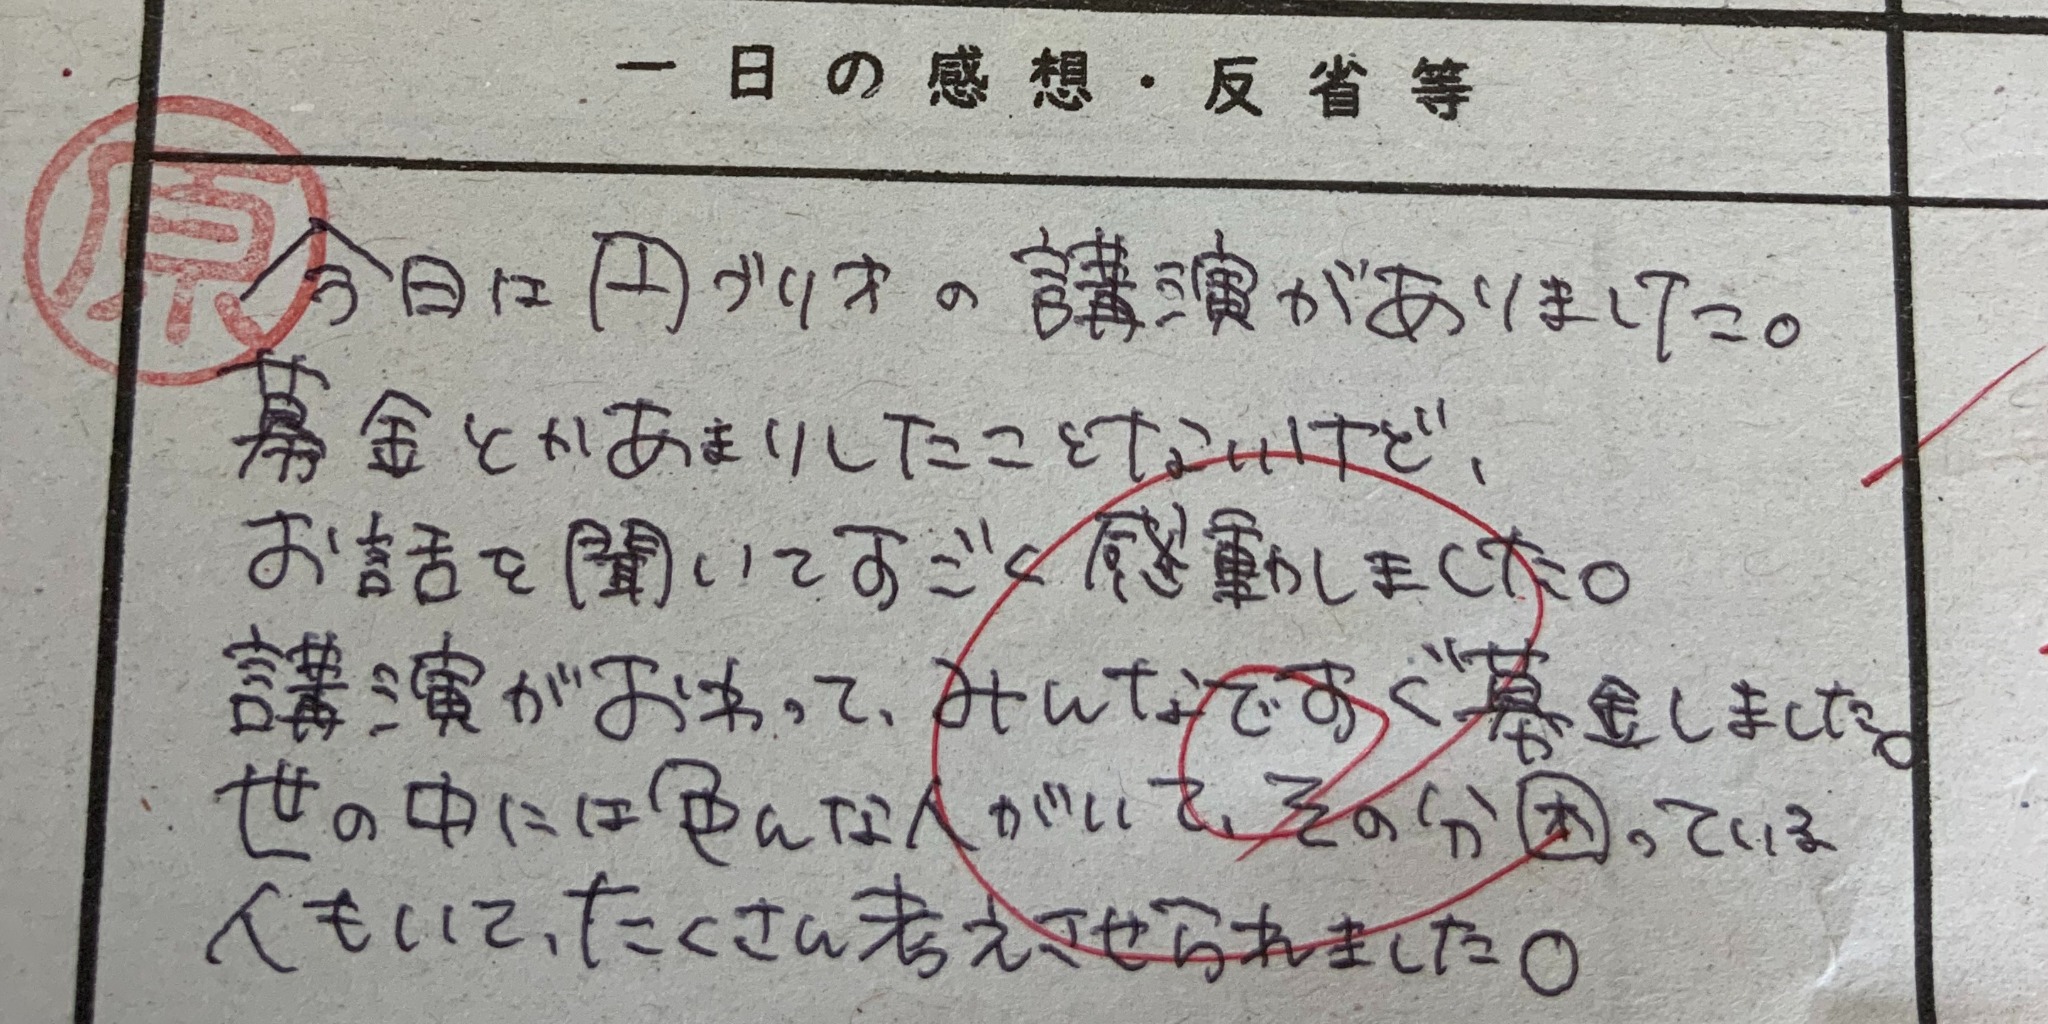 一日の感想・反省等
原
今日は円ブリオの講演がありました。
募金とかあまりしたことないけど、
お話を聞いてすごく感動しました。
講演がおわって、みんなですぐ募金しました。
世の中には色んな人がいて、その分困っている
人もいて、たくさん考えさせられました。